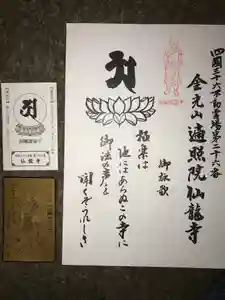 四國三十六不動霊場第二十六番
金光山 遍照院 仙龍寺
御詠歌
極楽は
他にはあらぬこの寺に
御法の声を
聞くぞうれしき
仙龍寺